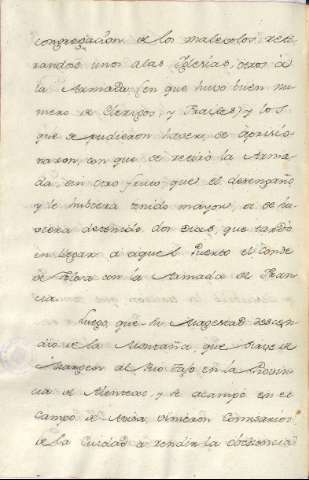 congregacion de los malevolos, reti
randose unos a las Iglesias, otros à
la Armada (en que huvo buen nu
mero de Clerigos, y Frailes) y los
que se pudieron haver, se aprisio
naron, con que se retirò la Arma
da, sin otro fruto, que el desengaño,
y le hubiera tenido mayor, si se hu
viera detenido dos dias, que tardò
en llegar a aquel Puerto el Conde
de con la Armada de Fran
cia.
Luego, que Su Magestad descen
dio de la Montaña, que sirve de
Margen al Rio Tajo en la Provin
cia de Alentejo, y se acampò en el
Campo de vinieron Comisarios
de la Ciudad a rendir la obediencia